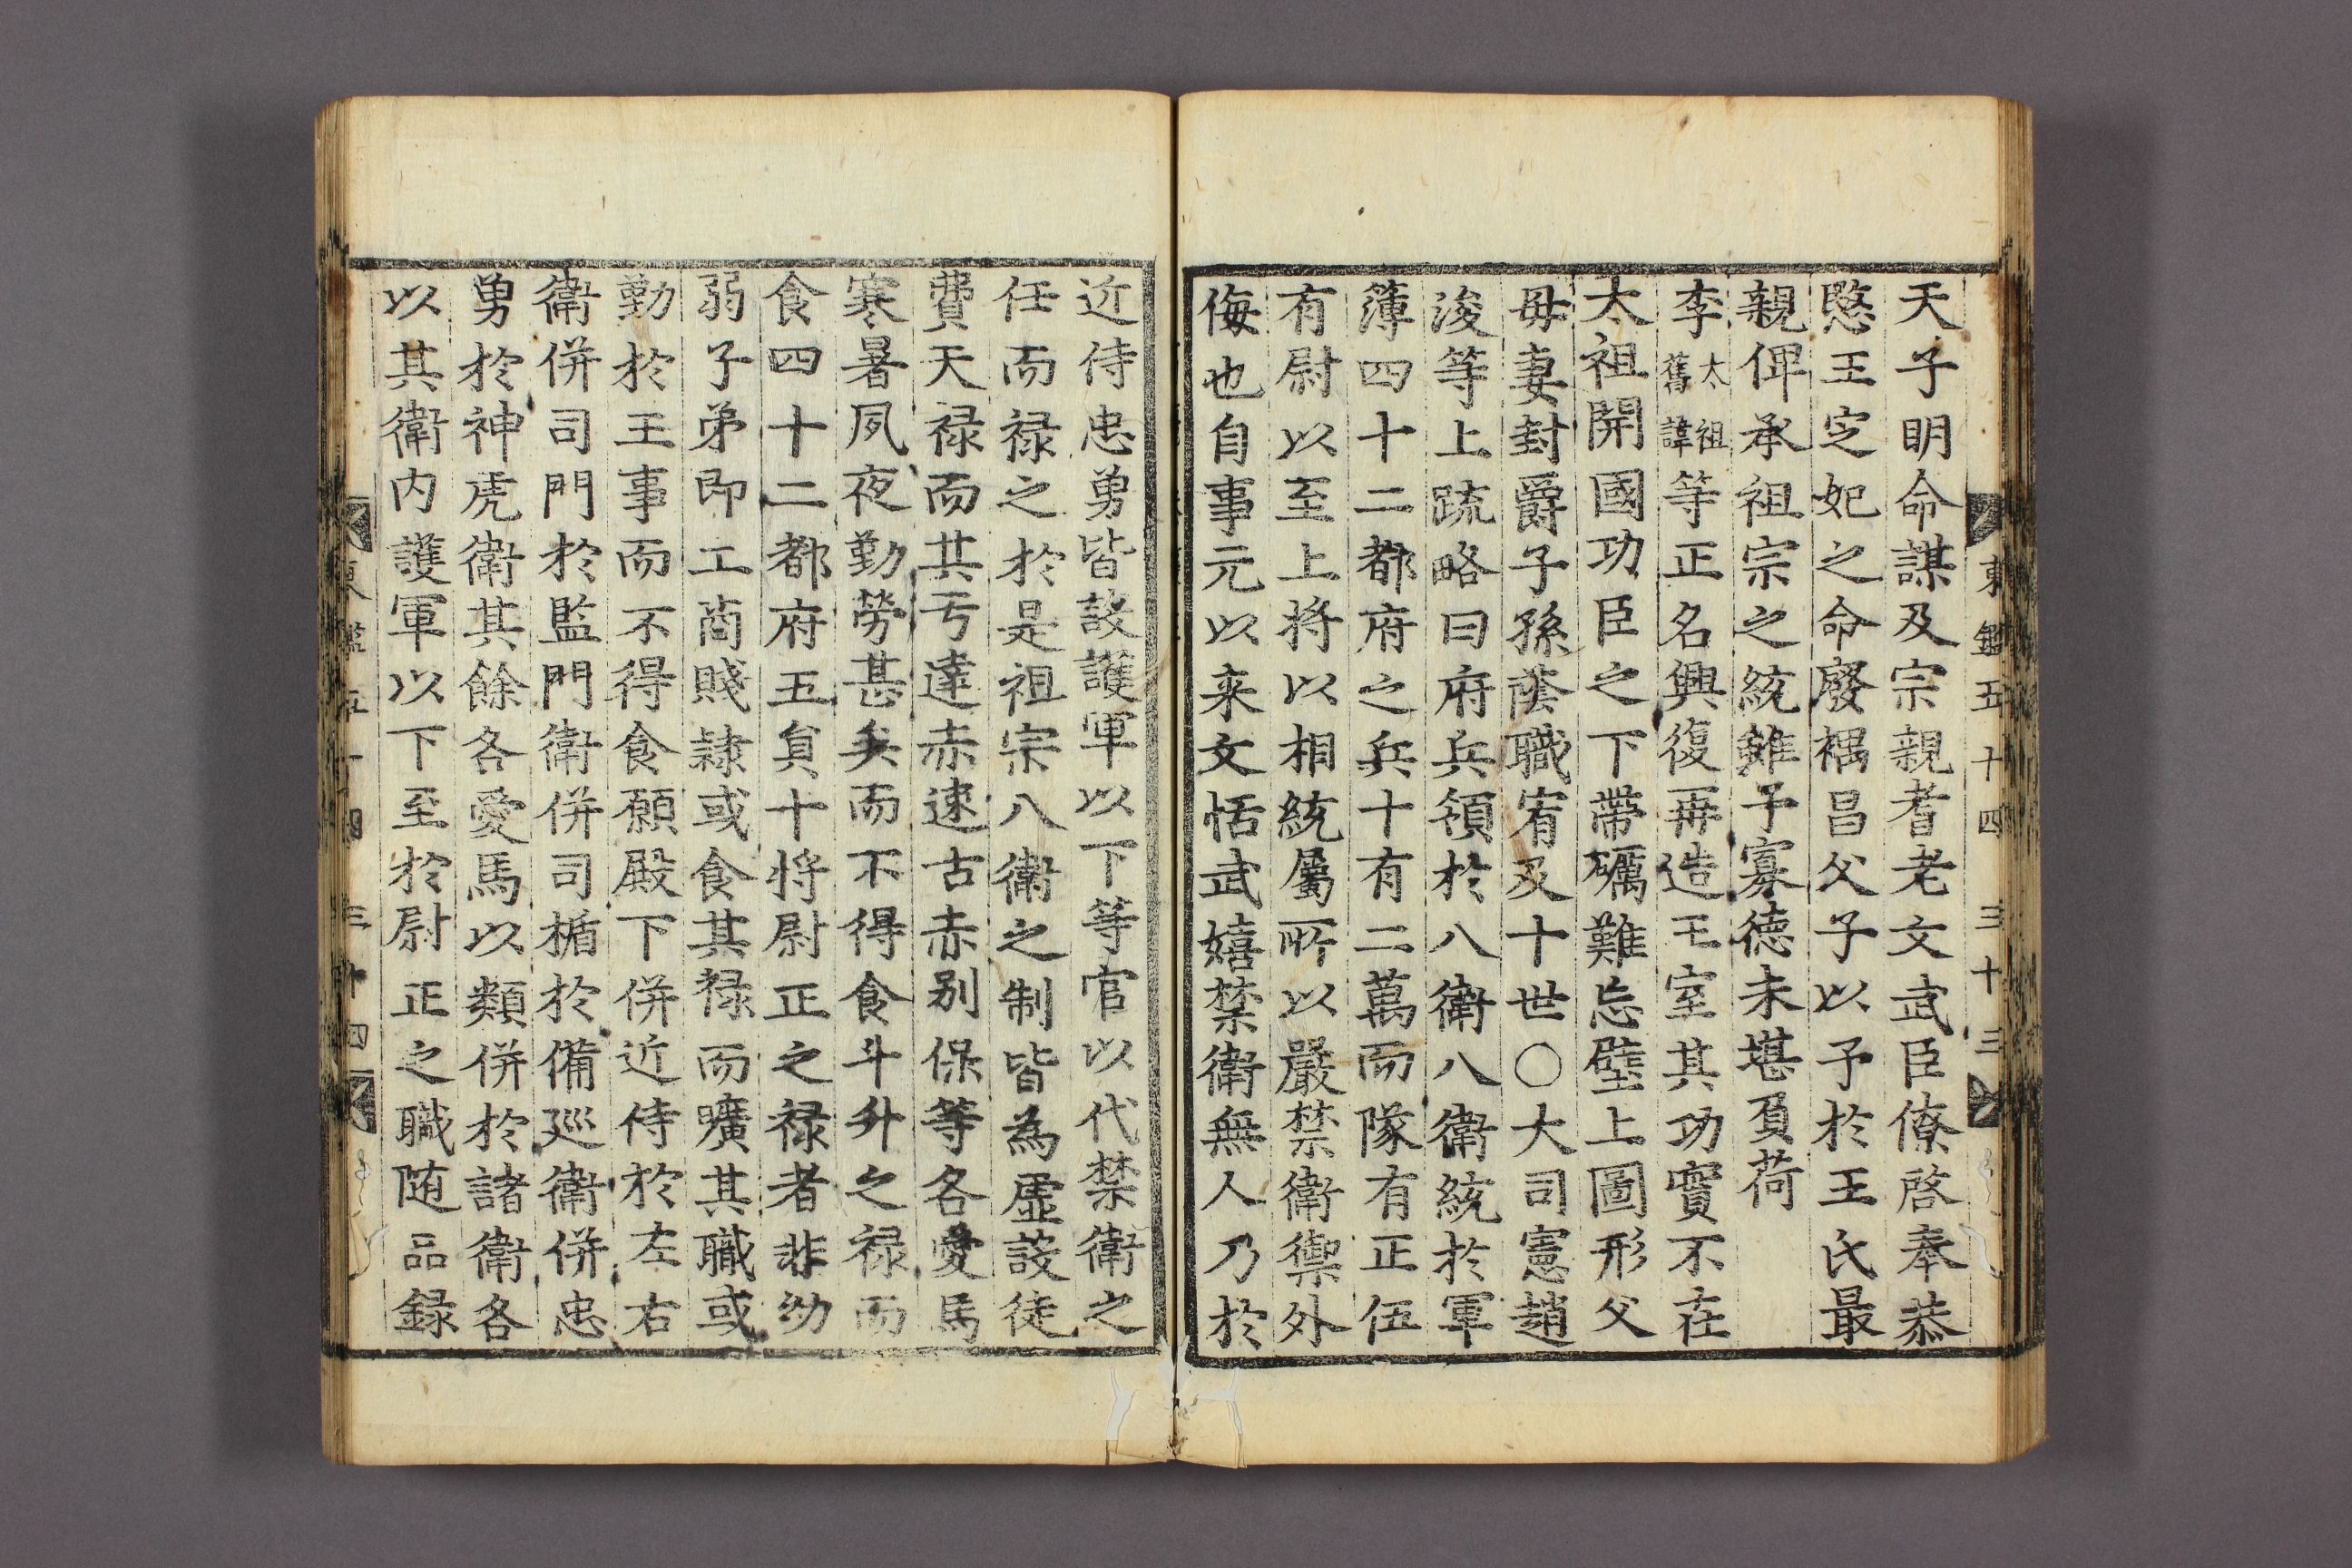 東鑑五十四 三十三
天子明命謀及宗親耆老文武臣僚啓奉恭
愍王定妃之命廢禑昌父子以予於王氏最
親俾承祖宗之統雖予寡德未堪負荷
李太祖舊諱等正名興復再造王室其功實不在
太祖開國功臣之下帶礪難忘壁上圖形父
母妻封爵子孫蔭職宥及十世○大司憲趙
浚等上疏略曰府兵領於八衛八衛統於軍
簿四十二都府之兵十有二萬而隊有正伍
有尉以至上將以相統屬所以嚴禁衛禦外
侮也自事元以来文恬武嬉禁衛無人乃於
近侍忠勇皆設護軍以下等官以代禁衛之
任而禄之於是祖宗八衛之制皆為虛設徒
費天禄而其亐達赤速古赤别保等各愛馬
寒暑夙夜勤勞甚矣而不得食斗升之禄而
食四十二都府五負十將尉正之禄者非幼
弱子弟即工商賤隸或食其禄而曠其職或
勤於王事而不得食願殿下併近侍於左右
衛併司門於監門衛併司楯於備巡衛併忠
勇於神虎衛其餘各愛馬以類併於諸衛各
以其衛内護軍以下至於尉正之職随品録
東鑑五十四 三十四